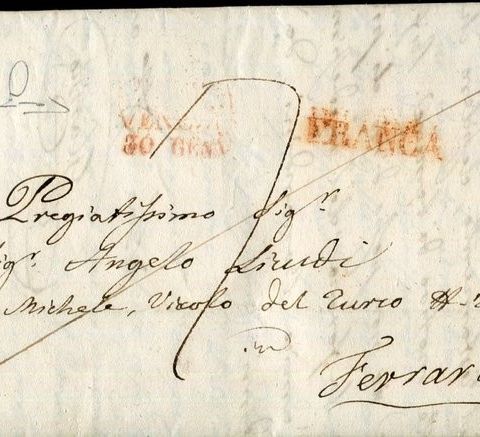 VENEZIA
30 GENN
FRANCA
Pregiatissimo Sigr
Sigr. Angelo
Michele, Vicolo del Turco
in
Ferrara